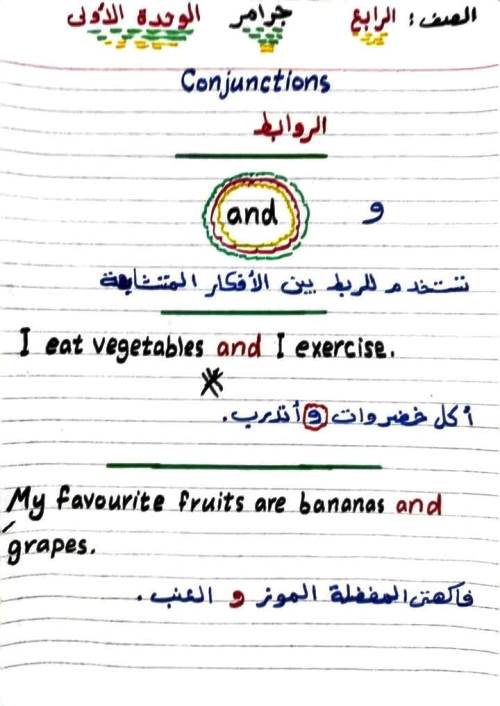 الصف: الرابع جرامر الوحدة الأولى
Conjunctions
الروابط
and و
تستخدم للربط بين الأفكار المتشابهة
I eat vegetables and I exercise.
أكل خضروات و أتدرب.
My favourite fruits are bananas and
grapes.
فاكهتي المفضلة الموز و العنب.